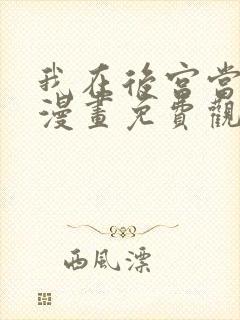 我在後宮當
漫畫免費觀
西風漂